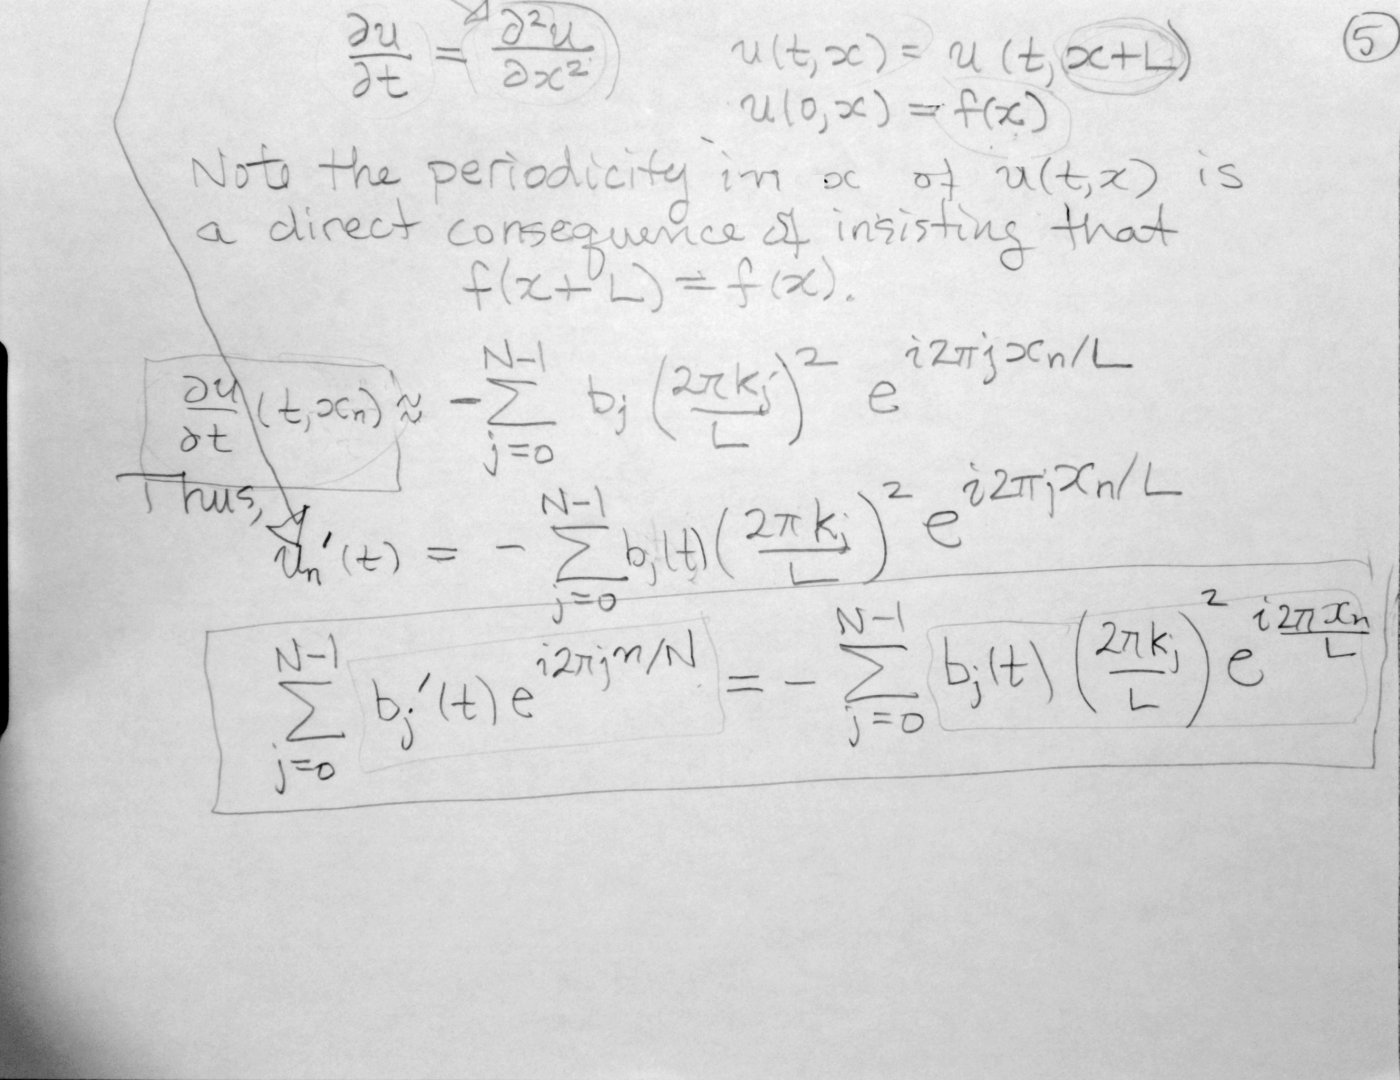 ∂u/∂t = ∂²u/∂x² u(t,x) = u(t, x+L) ⑤
u(0,x) = f(x)
Note the periodicity in x of u(t,x) is
a direct consequence of insisting that
f(x+L) = f(x).
∂u/∂t (t,xₙ) ≈ - ∑_{j=0}^{N-1} bⱼ (2πkⱼ/L)² e^{i2πjxₙ/L}
Thus,
uₙ'(t) = - ∑_{j=0}^{N-1} bⱼ(t) (2πkⱼ/L)² e^{i2πjxₙ/L}
∑_{j=0}^{N-1} bⱼ'(t) e^{i2πjn/N} = - ∑_{j=0}^{N-1} bⱼ(t) (2πkⱼ/L)² e^{i2πxₙ/L}